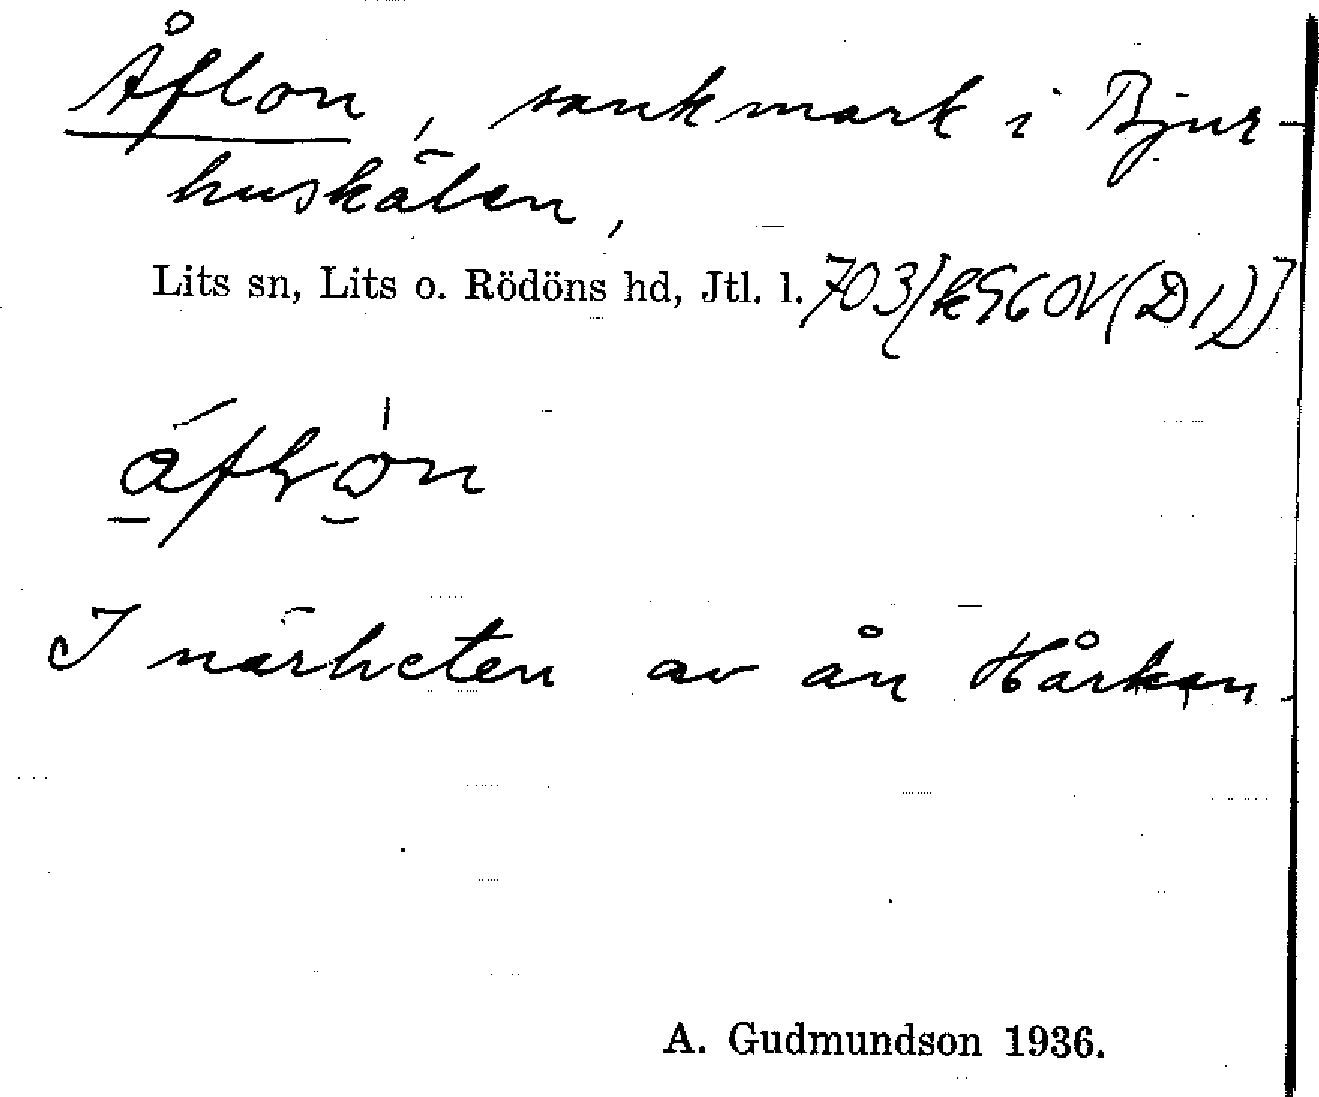 Åflon, sankmark i Bjur-
huskälen,
Lits sn, Lits o. Rödöns hd, Jtl. l.
I närheten av ån Hårkan.
A. Gudmundson 1936.